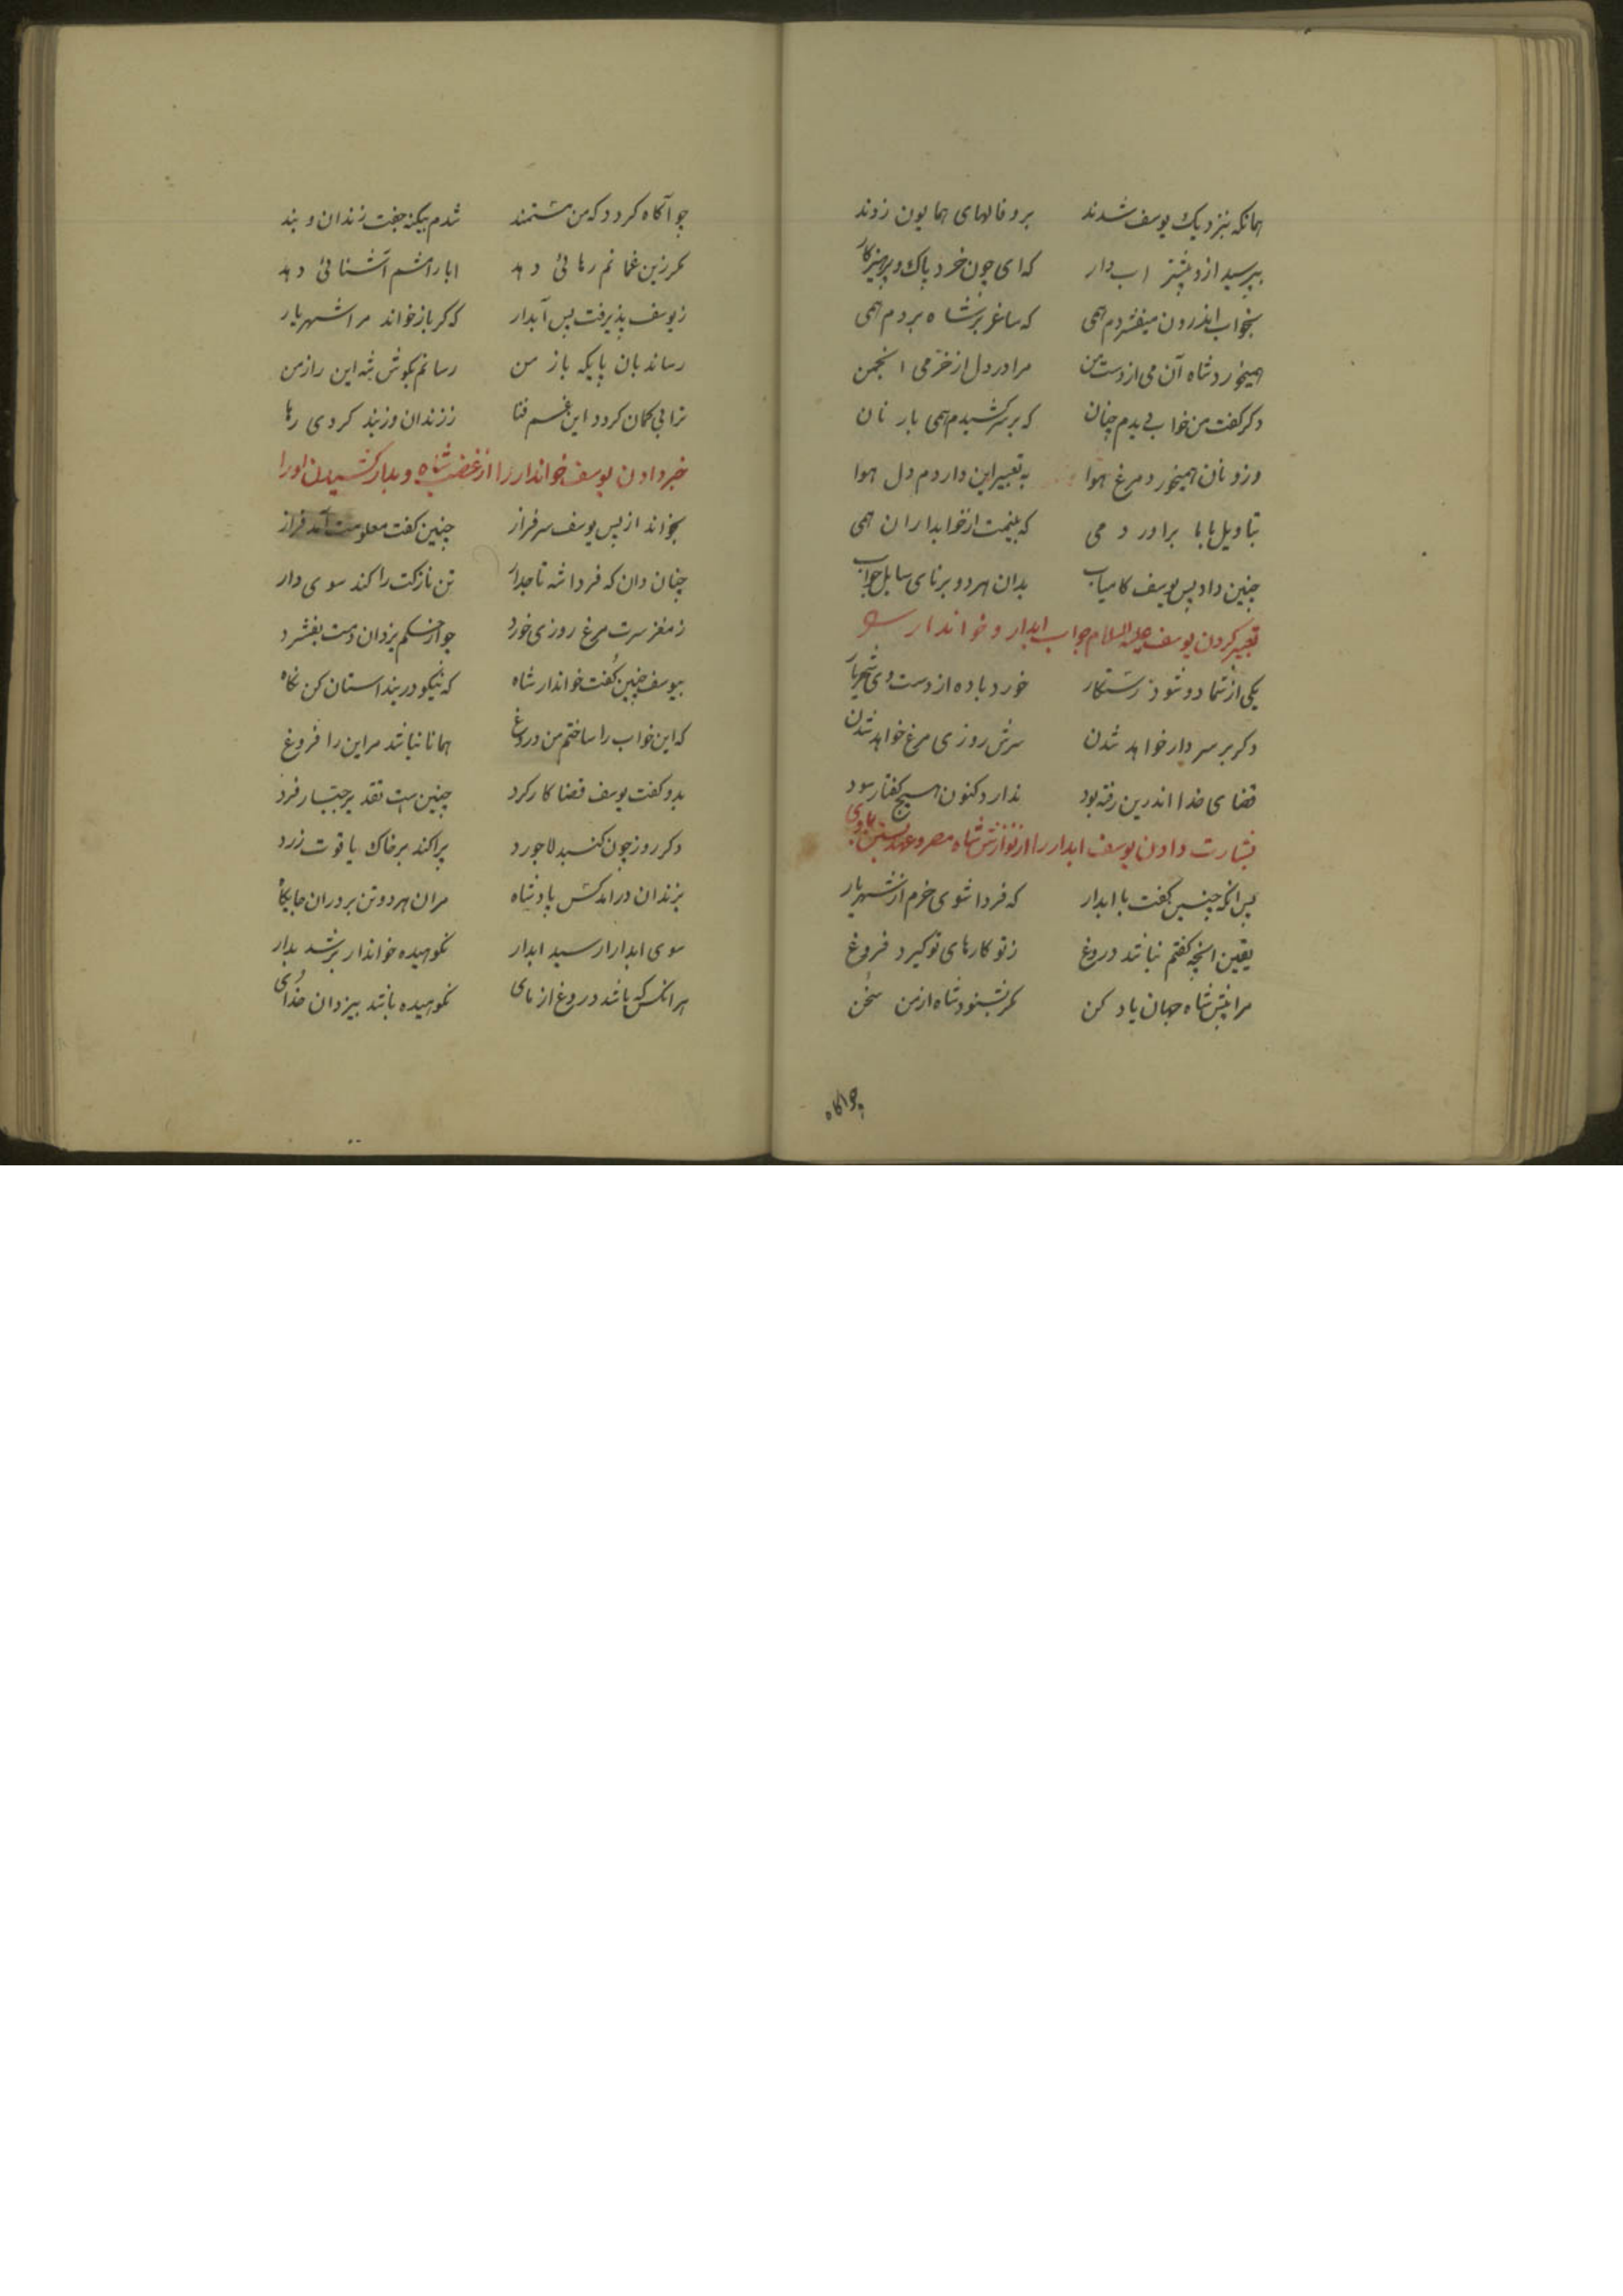 همانکه بنزدیک یوسف شدند برو فالهای همایون زدند
بپرسید ازو پیشتر اب دار که ای چون خرد پاک و پرهیزکار
بخواب اندرون میفشردم همی که ساغر بر شاه بردم همی
همیخورد شاه آن می از دست من مرا در دل از خرمی انجمن
دکر کفت من خواب دیدم چنان که بر سر کشیدم همی بار نان
وزو نان همیخورد مرغ هوا به تعبیر این داردم دل هوا
بتاویل باما براورد می که بینمت از خوابداران همی
چنین داد پس یوسف کامیاب بدان هر دو برنای سایل جواب
تعبیر کردن یوسف علیه السلام جواب ابدار و خواندار
یکی از شما دو شود رستکار خورد باده از دست وی شهریار
دکر بر سر دار خواهد شدن سرش روزی مرغ خواهد شدن
قضای خدا اندرین رفته بود ندارد کنون هیچ کفتار سود
بشارت دادن یوسف ابدار را از نوازش شاه مصر و عهد بستن باوی
پس انکه چنین کفت با ابدار که فردا شوی خرم از شهریار
یقین انچه کفتم نباشد دروغ ز تو کارهای تو کیرد فروغ
مرا پیش شاه جهان یاد کن مکر بشنود شاه از من سخن
چو اکاه
چو آکاه کردد که من مستمند شدم بیکنه جفت زندان و بند
مکر زین غمانم رهائی دهد ابا رامشم آشنائی دهد
ز یوسف پذیرفت پس آبدار که کر باز خواند مرا شهریار
رساند بان پایکه باز من رسانم بکوش شه این راز من
ترا بی کمان کردد این غم فنا ز زندان و ز بند کردی رها
خبر دادن یوسف خواندار را از غضب شاه و بدار کشیدن اورا
بخواند از پس یوسف سرفراز چنین کفت معلومت آمد فراز
چنان دان که فردا شه تاجدار تن نازکت را کند سوی دار
ز مغز سرت مرغ روزی خورد چو از حکم یزدان دمت بفشرد
بیوسف چنین کفت خواندار شاه که نیکو درین داستان کن نکاه
که این خواب را ساختم من دروغ همانا نباشد مر این را فروغ
بدو کفت یوسف قضا کار کرد چنین است تقدیر جبار فرد
دکر روز چون کنبد لاجورد پراکند بر خاک یاقوت زرد
بزندان درامد کس پادشاه مران هر دو تن برد زان جایکاه
سوی ابدار ار سید ابدار نکوهیده خواندار بر شد بدار
هر انکس که باشد دروغ ازمای نکوهیده باشد بیزدان خدای